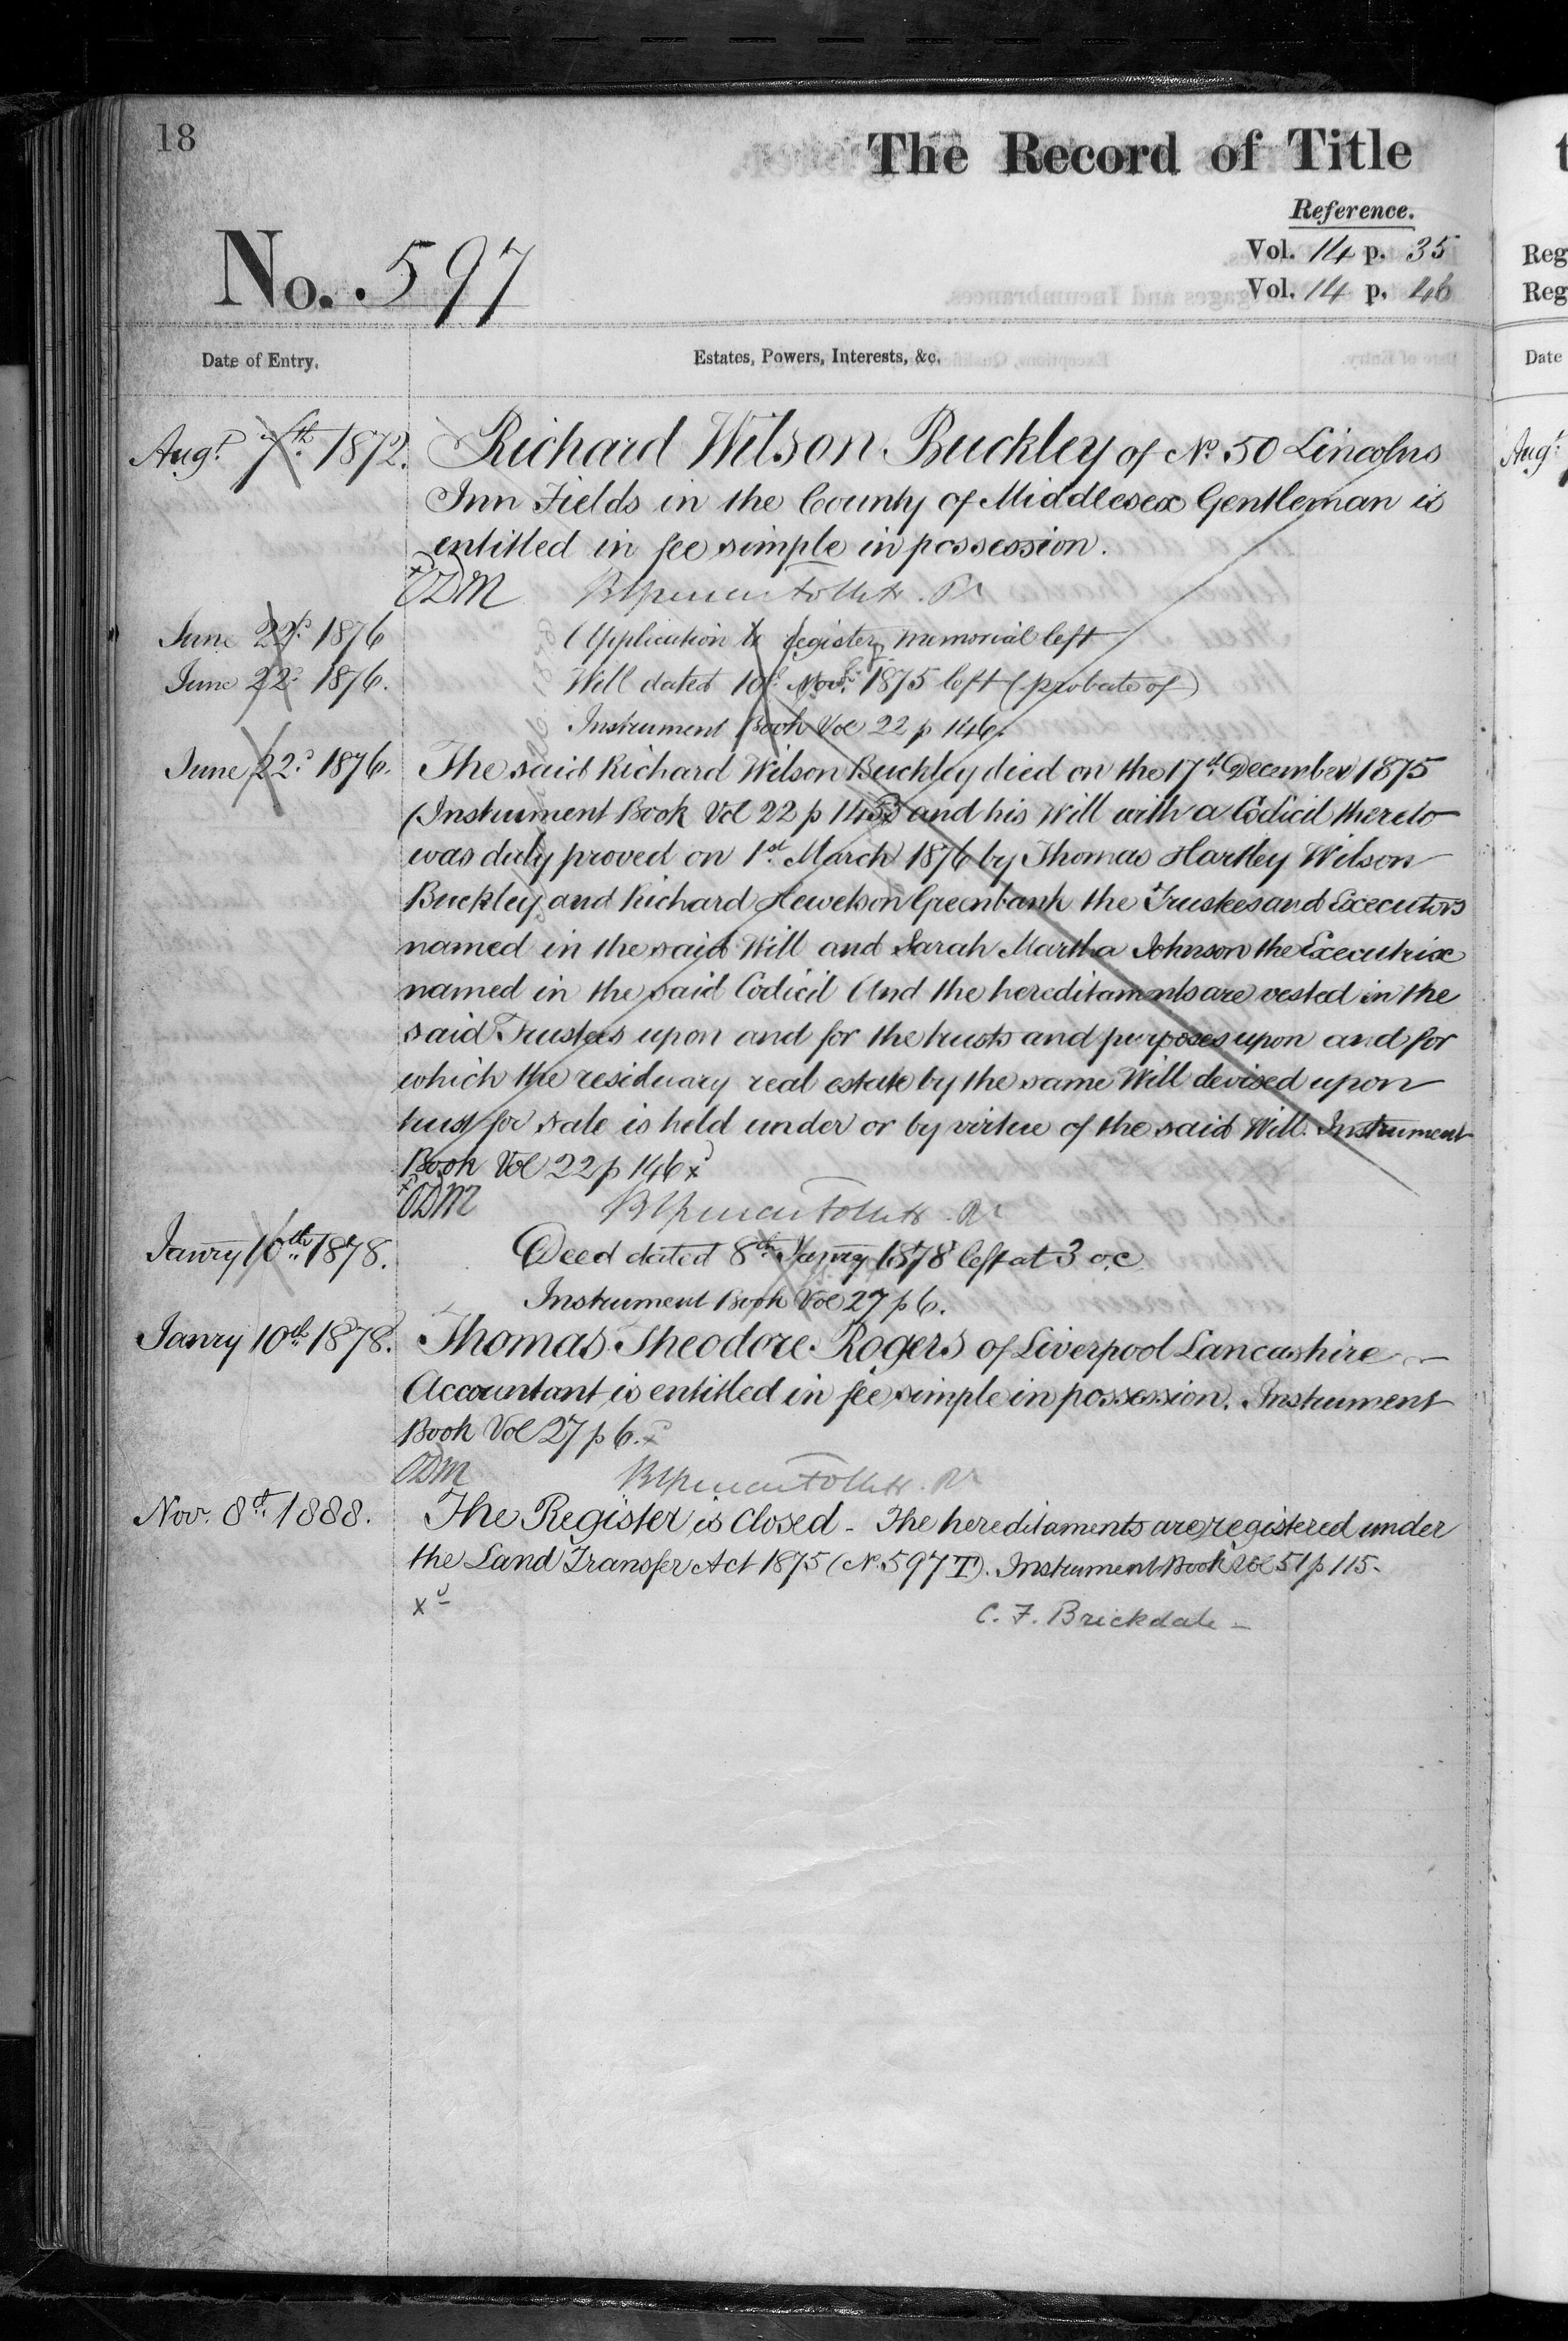 18
The Record of Title
Reference.
Vol. 14 p. 35
Vol. 14 p. 46
No. 597
Date of Entry.
Estates, Powers, Interests, &c.
Augt. 7th. 1872. Richard Wilson Buckley of No. 50 Lincolns
Inn Fields in the County of Middlesex Gentleman is
entitled in fee simple in possession.
ODM
June 22d. 1876 Application to register memorial left
June 22d. 1876. Will dated 10th. Novr. 1875 left (probate of)
Instrument Book Vol 22 p 146.
June 22d. 1876. The said Richard Wilson Buckley died on the 17th. December 1875
(Instrument Book Vol 22 p 145) and his Will with a Codicil thereto
was duly proved on 1st. March 1876 by Thomas Hartley Wilson
Buckley and Richard Hewetson Greenbank the Trustees and Executors
named in the said Will and Sarah Martha Johnson the Executrix
named in the said Codicil And the hereditaments are vested in the
said Trustees upon and for the trusts and purposes upon and for
which the residuary real estate by the same Will devised upon
trust for sale is held under or by virtue of the said Will. Instrument
Book Vol 22 p 146 x
ODM
Janry 10th. 1878. Deed dated 8th. Janry 1878 left at 3 o.c
Instrument Book Vol 27 p 6.
Janry 10th. 1878. Thomas Theodore Rogers of Liverpool Lancashire
Accountant is entitled in fee simple in possession. Instrument
Book Vol 27 p 6. x
ODM
Nov. 8th. 1888. The Register is Closed - The hereditaments are registered under
the Land Transfer Act 1875 (No. 597 T). Instrument Book Vol 51 p 115.
C. F. Brickdale -
Reg
Reg
Date
Augt.